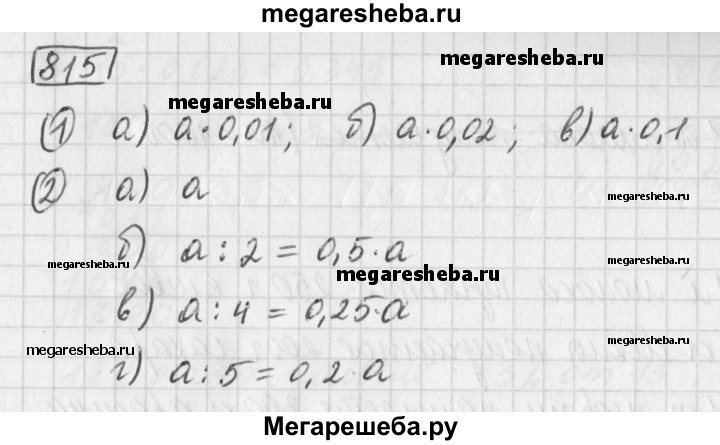 megaresheba.ru
815
megaresheba.ru
① а) а·0,01; б) а·0,02; в) а·0,1
megaresheba.ru
② а) а
megaresheba.ru
megaresheba.ru
б) а:2 = 0,5·а
megaresheba.ru
megaresheba.ru
в) а:4 = 0,25·а
megaresheba.ru
megaresheba.ru
г) а:5 = 0,2·а
Мегарешеба.ру